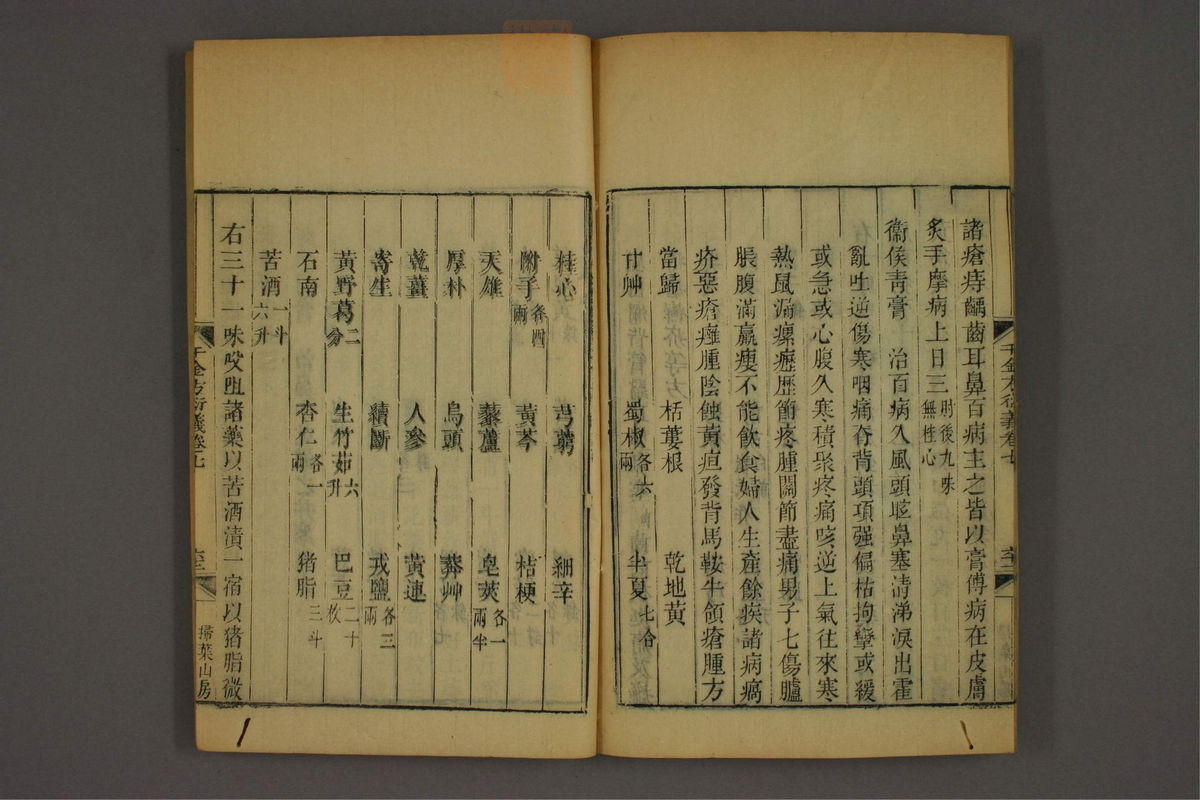 諸瘡痔齲齒耳鼻百病主之皆以膏傅病在皮膚
炙手摩病上日三肘後九味無桂心
衞侯靑膏 治百病久風頭眩鼻塞清涕淚出霍
亂吐逆傷寒咽痛脊背頭項强偏枯拘攣或緩
或急或心腹久寒積聚疼痛咳逆上氣往來寒
熱鼠漏瘰癧歷節疼腫關節盡痛男子七傷臚
脹腹滿羸瘦不能飲食婦人生產餘疾諸病瘑
疥惡瘡癰腫陰蝕黃疸發背馬鞍牛領瘡腫方
當歸 栝蔞根 乾地黃
甘艸 蜀椒各六兩 半夏七合
桂心 芎藭 細辛
附子各四兩 黃芩 桔梗
天雄 藜蘆 皂莢各一兩半
厚朴 烏頭 莽艸
乾薑 人參 黃連
寄生 續斷 戎鹽各三兩
黃野葛二分 生竹茹六升 巴豆二十枚
石南 杏仁各一兩 猪脂三斗
苦酒一斗六升
右三十一味㕮咀諸藥以苦酒漬一宿以猪脂微
千金方衍義卷七
千金方衍義卷七
掃葉山房